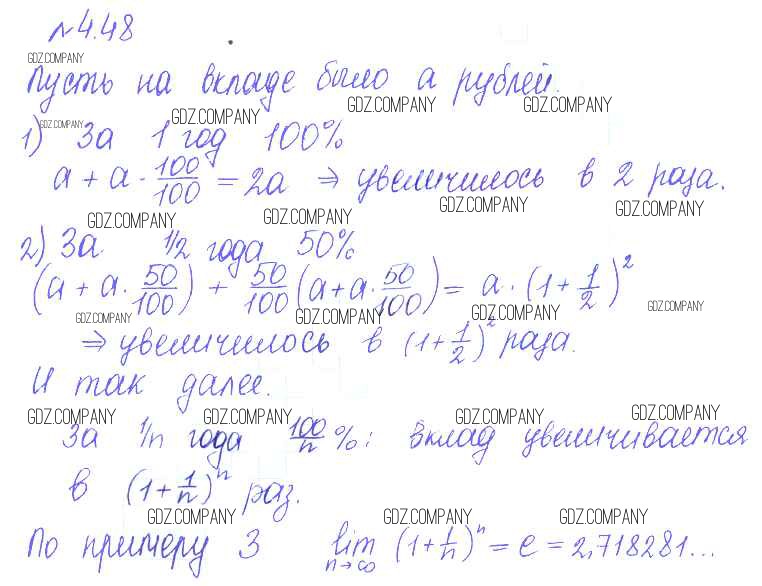 №4.48
GDZ.COMPANY
Пусть на вкладе было а рублей.
GDZ.COMPANY GDZ.COMPANY GDZ.COMPANY GDZ.COMPANY
1) За 1 год 100%
a + a · 100/100 = 2a ⇒ увеличилось в 2 раза.
GDZ.COMPANY GDZ.COMPANY GDZ.COMPANY GDZ.COMPANY
2) За 1/2 года 50%
(a + a · 50/100) + 50/100 (a + a · 50/100) = a · (1 + 1/2)²
GDZ.COMPANY GDZ.COMPANY GDZ.COMPANY GDZ.COMPANY
⇒ увеличилось в (1 + 1/2)² раза.
И так далее.
GDZ.COMPANY GDZ.COMPANY GDZ.COMPANY GDZ.COMPANY
За 1/n года 100/n %: вклад увеличивается
в (1 + 1/n)ⁿ раз.
GDZ.COMPANY GDZ.COMPANY GDZ.COMPANY
По примеру 3 lim n→∞ (1 + 1/n)ⁿ = e = 2,718281...